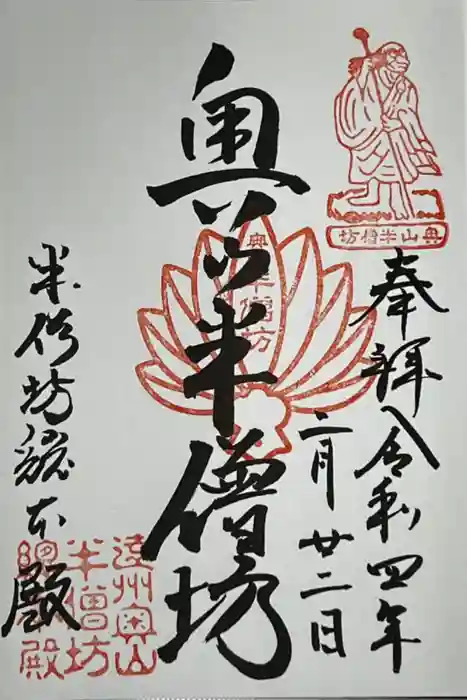 奥山半僧坊
奉拝
令和四年
二月廿二日
奥山半僧坊
奥山半僧坊
半僧坊総本殿
遠州奥山
半僧坊
總本殿